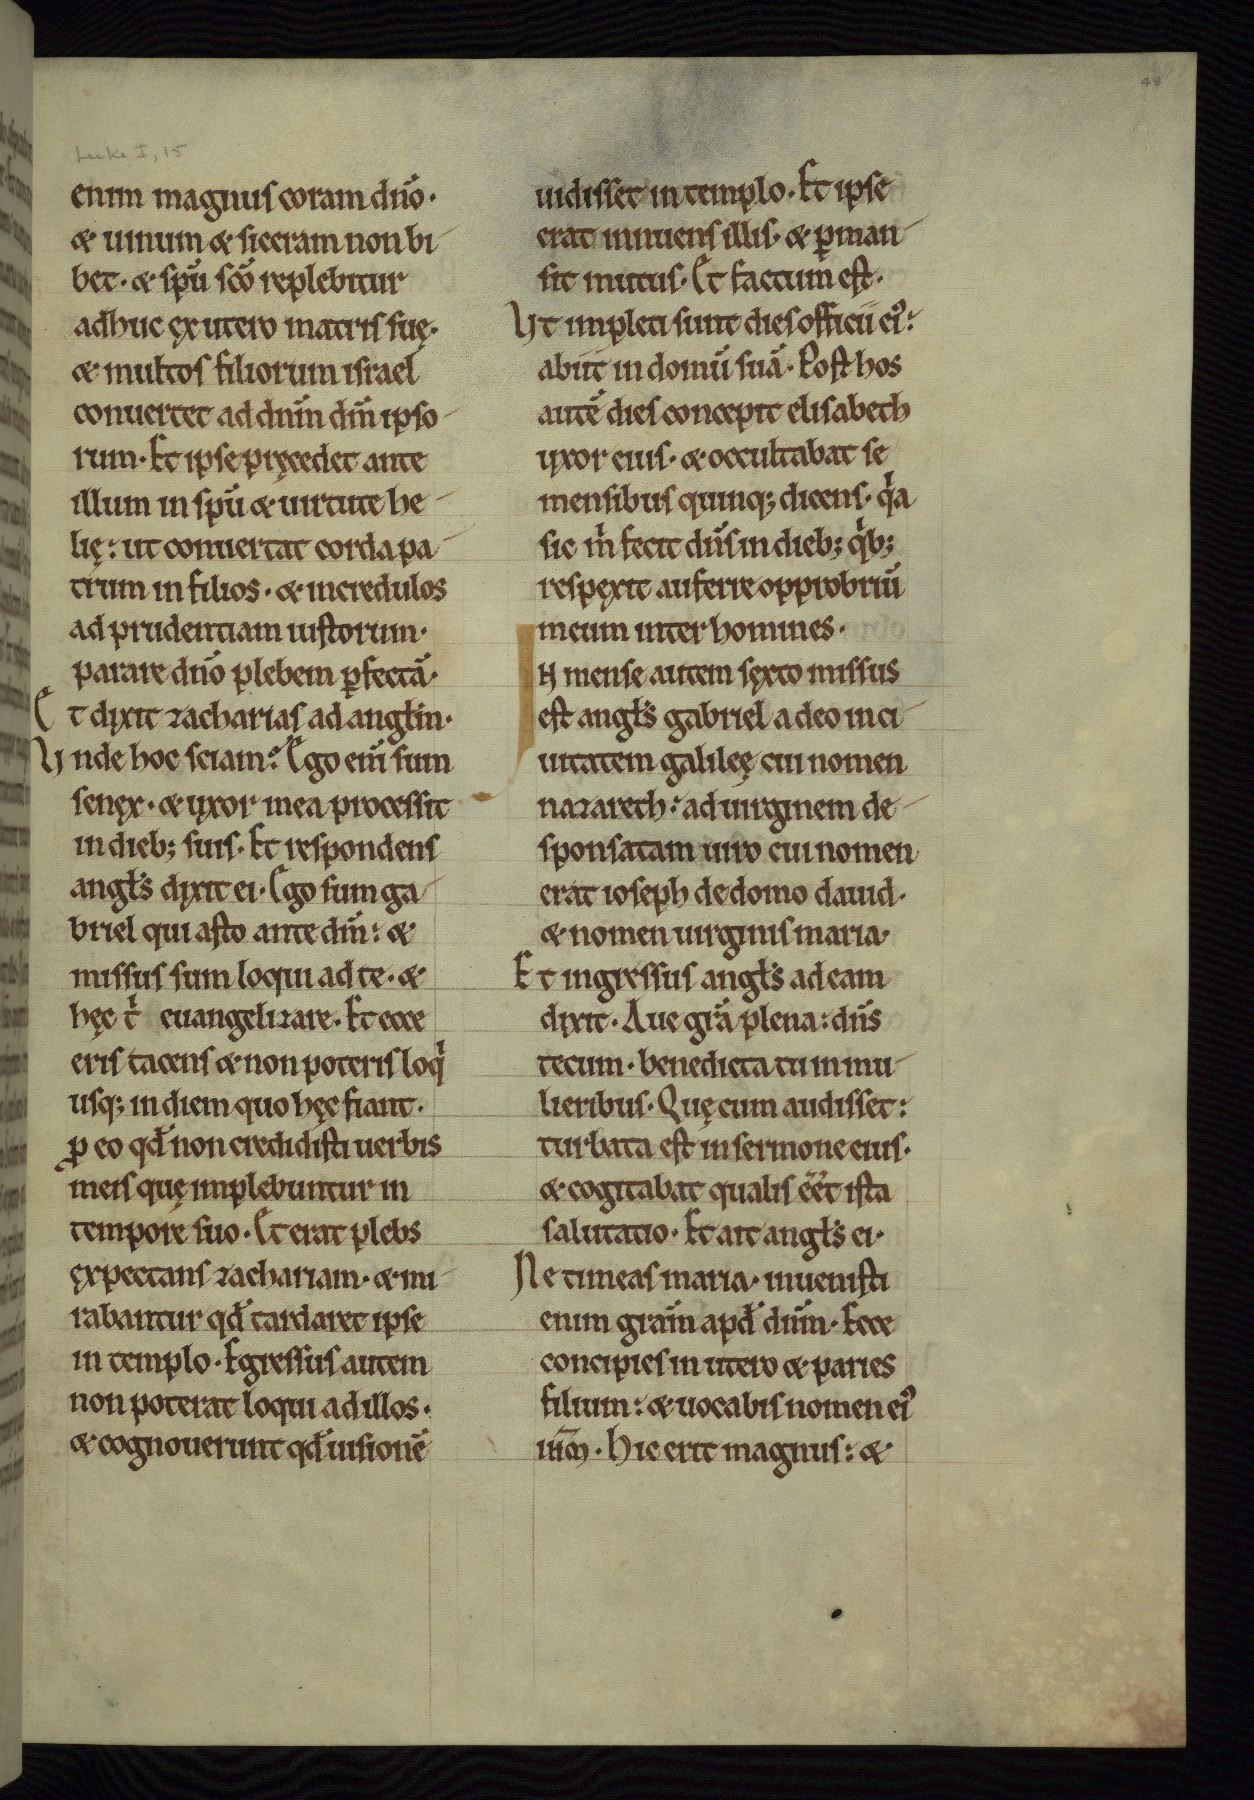 48
Luke I, 15
enim magnus coram dño·
& uinum & siceram non bi-
bet· & spū scō replebitur
adhuc ex utero matris suę·
& multos filiorum israel
conuertet ad dn̄m dm̄ ipso-
rum· Et ipse pręcedet ante
illum in spū & uirtute he-
lię: ut conuertat corda pa-
trum in filios· & incredulos
ad prudentiam iustorum·
parare dño plebem ꝑfectā·
Et dixit zacharias ad angl̄m·
Vnde hoc sciam? Ego em̄ sum
senex· & uxor mea processit
in dieb; suis· Et respondens
angl̄s dixit ei· Ego sum ga-
briel qui asto ante dm̄: &
missus sum loqui ad te· &
hęc t̍ euangelizare· Et ecce
eris tacens & non poteris loq̍
usq; in diem quo hęc fiant·
ꝓ eo qd̄ non credidisti uerbis
meis quę implebuntur in
tempore suo· Et erat plebs
expectans zachariam· & mi-
rabantur qd̄ tardaret ipse
in templo· Egressus autem
non poterat loqui ad illos·
& cognouerunt qd̄ uisionē
uidisset in templo· Et ipse
erat innuens illis· & ꝑman-
sit mutus· Et factum est·
Vt impleti sunt dies officii ei᾽:
abiit in domū suā· Post hos
autē dies concepit elisabeth
uxor eius· & occultabat se
mensibus quinq; dicens· q̍a
sic m̍ fecit dn̄s in dieb; q̍b;
respexit auferre opprobriū
meum inter homines·
IN mense autem sexto missus
est angl̄s gabriel a deo in ci-
uitatem galileę cui nomen
nazareth: ad uirginem de-
sponsatam uiro cui nomen
erat ioseph de domo dauid·
& nomen uirginis maria·
Et ingressus angl̄s ad eam
dixit· Aue grā plena: dn̄s
tecum· benedicta tu in mu-
lieribus· Quę cum audisset:
turbata est in sermone eius·
& cogitabat qualis eēt ista
salutatio· Et ait angl̄s ei·
Ne timeas maria· inuenisti
enim grām apd̄ dn̄m· Ecce
concipies in utero & paries
filium: & uocabis nomen ei᾽
ih̄m· Hic erit magnus: &